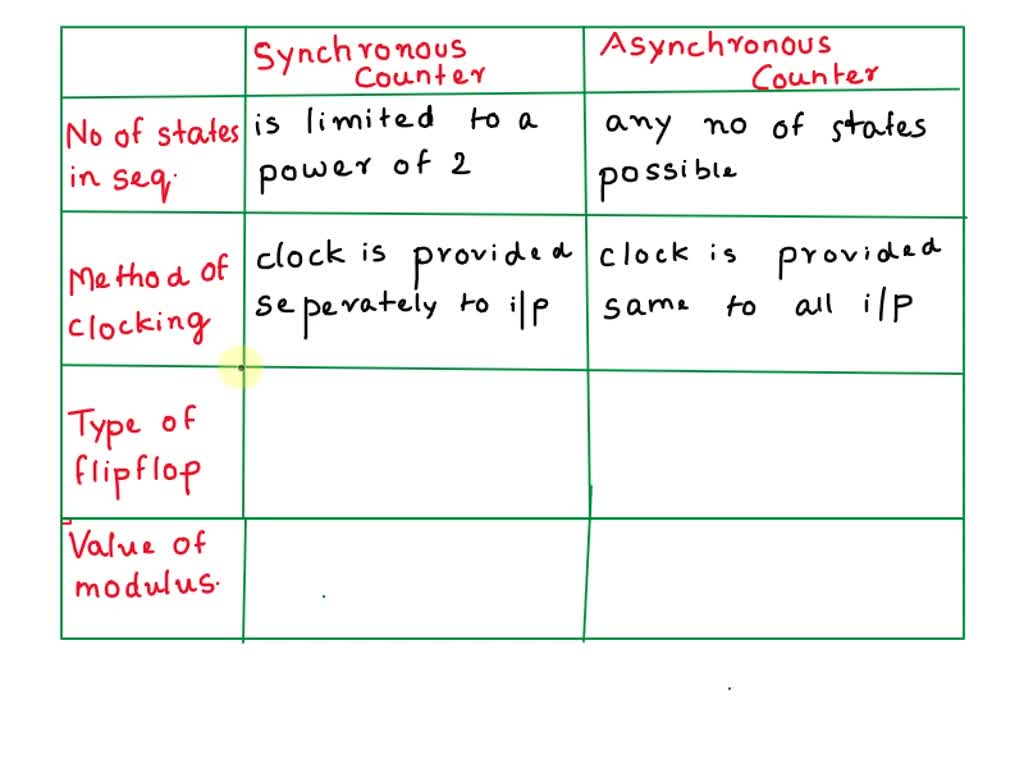 Synchronous Counter
Asynchronous Counter
No of states in seq.
is limited to a power of 2
any no of states possible
Method of clocking
clock is provided seperately to i/p
clock is provided same to all i/p
Type of flipflop
Value of modulus.